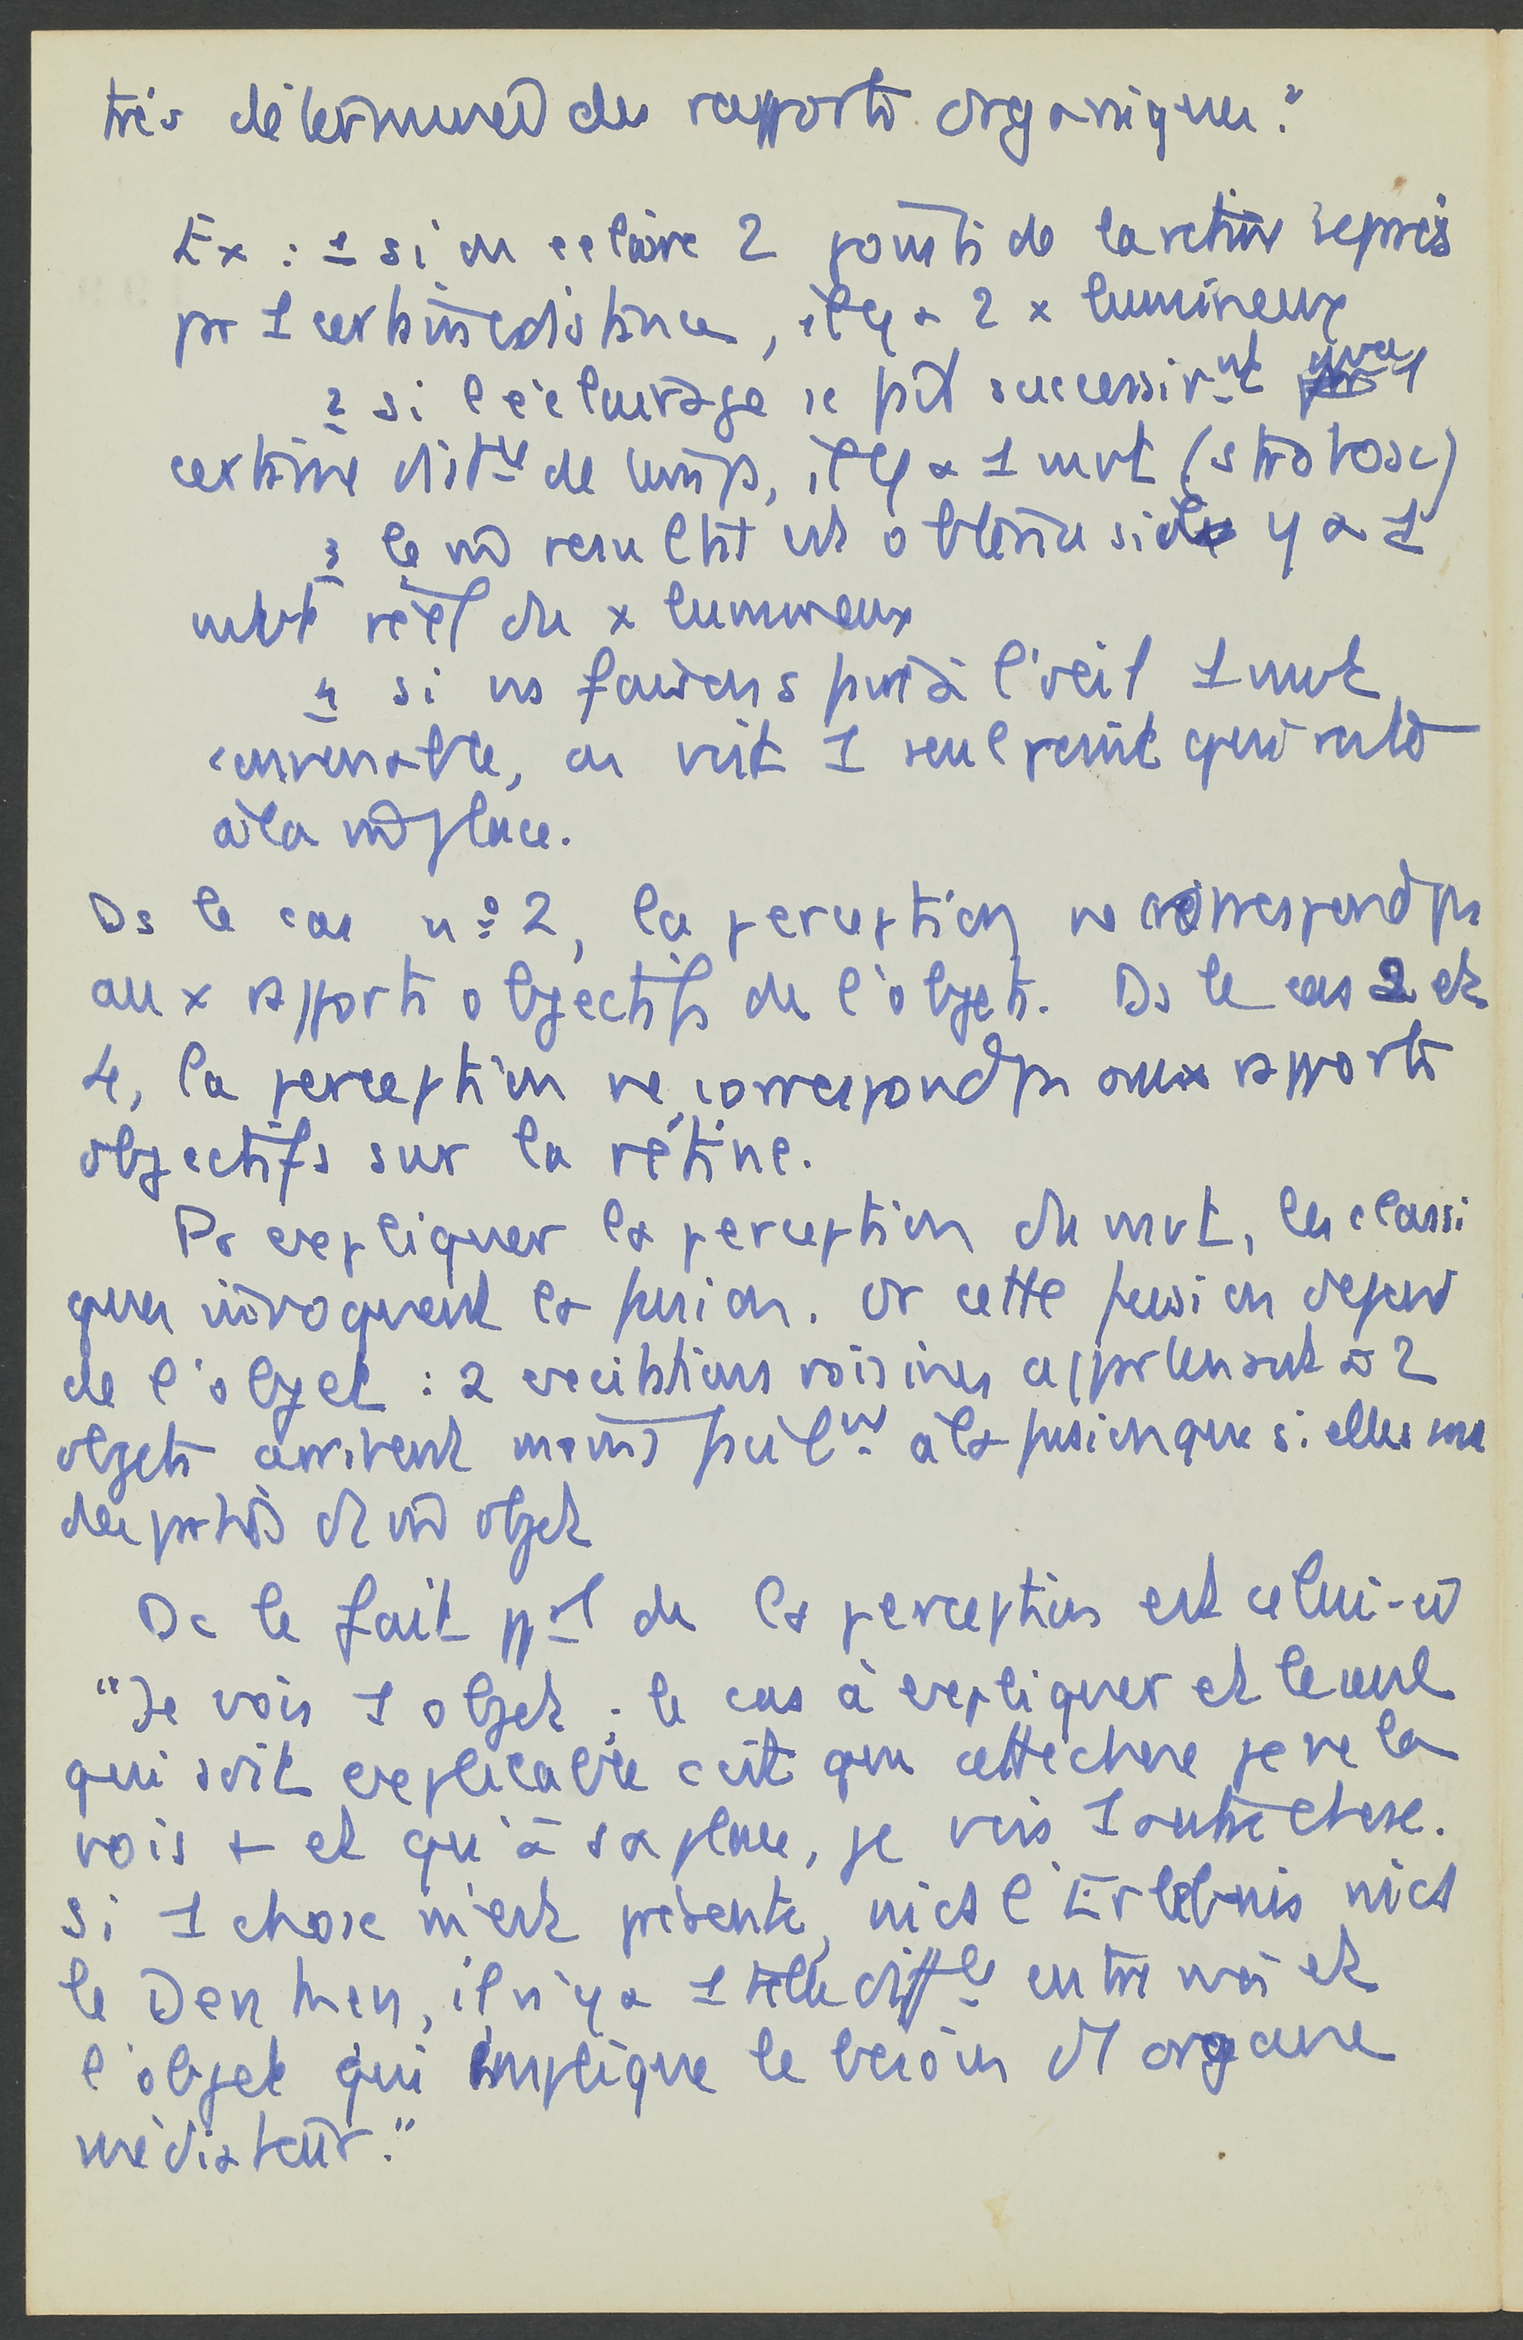 très déterminées des rapports organiques."
Ex : 1 si on éclaire 2 points de la rétine séparés
pr 1 certaine distance, il y a 2 x lumineux
2 si l'éclairage se fait successivmt avec 1
certaine distce de temps, il y a 1 mvt (strobosc)
3 le m̂ résultat est obtenu si il y a 1
mvt réel du x lumineux
4 si ns faisons faire à l'œil 1 mvt
convenable, on voit 1 seul point qui reste
à la m̂ place.
Ds le cas n° 2, la perception ne correspond pas
aux rapports objectifs de l'objet. Ds le cas 2 et
4, la perception ne correspond pas aux rapports
objectifs sur la rétine.
Pr expliquer la perception du mvt, les classi
ques invoquent la fusion. Or cette fusion dépend
de l'objet : 2 excitations voisines appartenant à 2
objets arrivent moins facilmt à la fusion que si elles sont
des parties d'1 m̂ objet
Dc le fait ppal de la perception est celui-ci
"Je vois 1 objet ; le cas à expliquer et le seul
qui soit explicable c'est que cette chose je ne la
vois + et qu'à sa place, je vois 1 autre chose.
Si 1 chose m'est présente, nict l'Erlebnis nict
le Denken, il n'y a 1 telle diffce entre moi et
l'objet qui implique le besoin d'1 organe
médiateur."